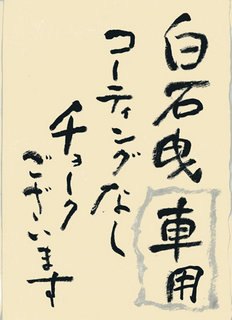 白石曳車用
コーティングなし
チョーク
ございます